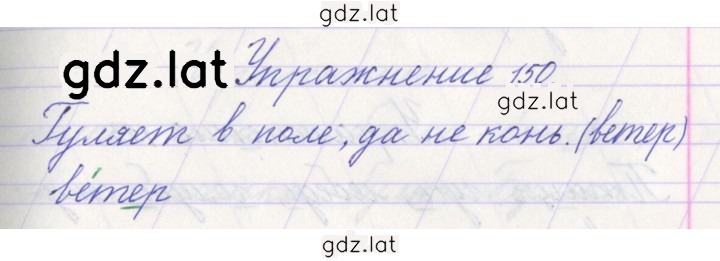 gdz.lat
gdz.lat Упражнение 150
gdz.lat
Гуляет в поле, да не конь. (ветер)
ве́тер
gdz.lat